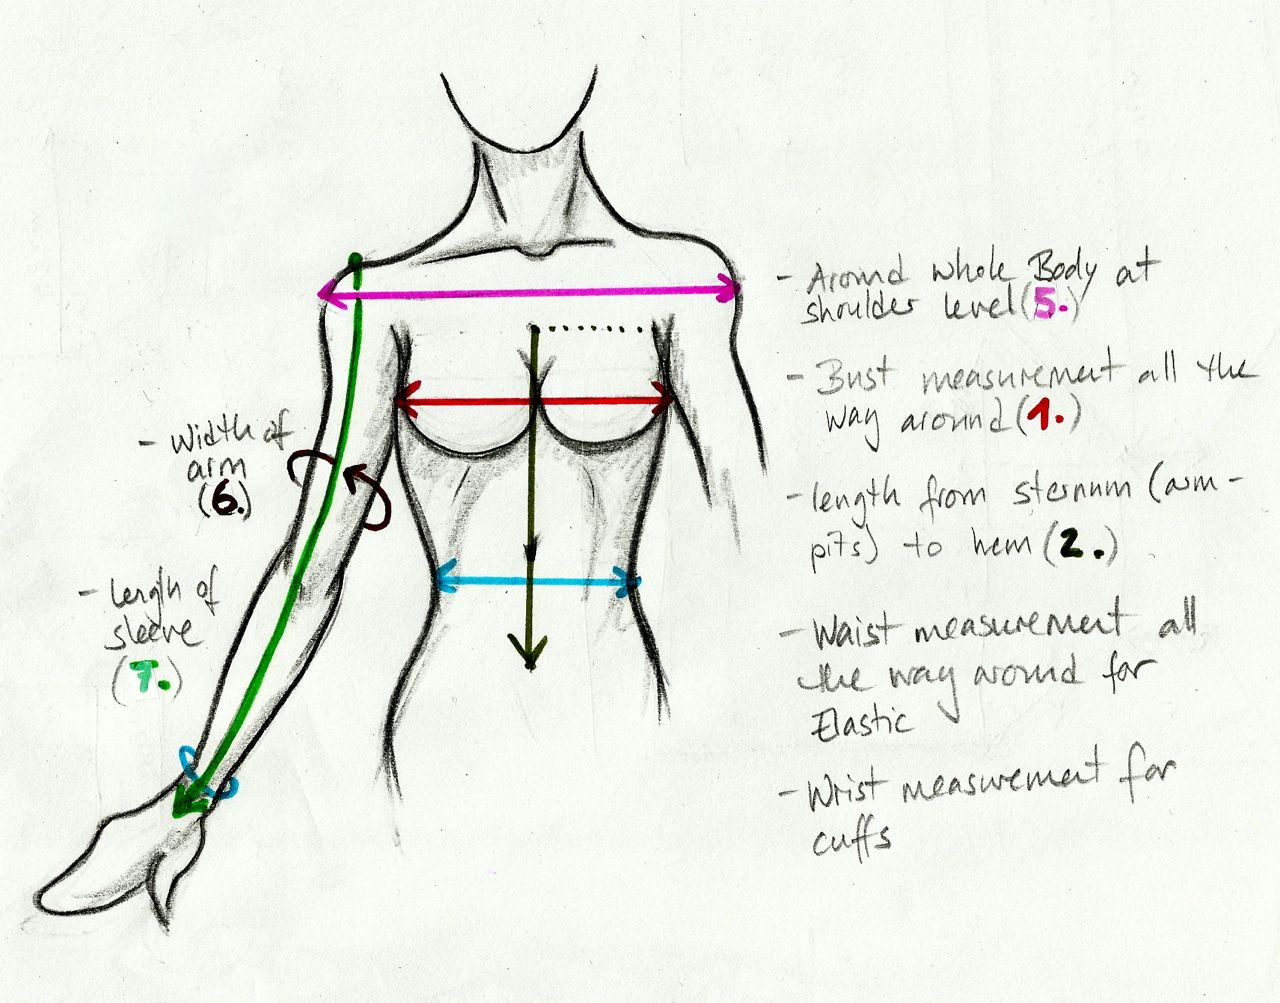 - Around whole Body at
shoulder level (5.)
- Bust measurement all the
way around (1.)
- Width of
arm
(6.)
- length from sternum (arm-
pits) to hem (2.)
- Length of
sleeve
(7.)
- Waist measurement all
the way around for
Elastic
- Wrist measurement for
cuffs